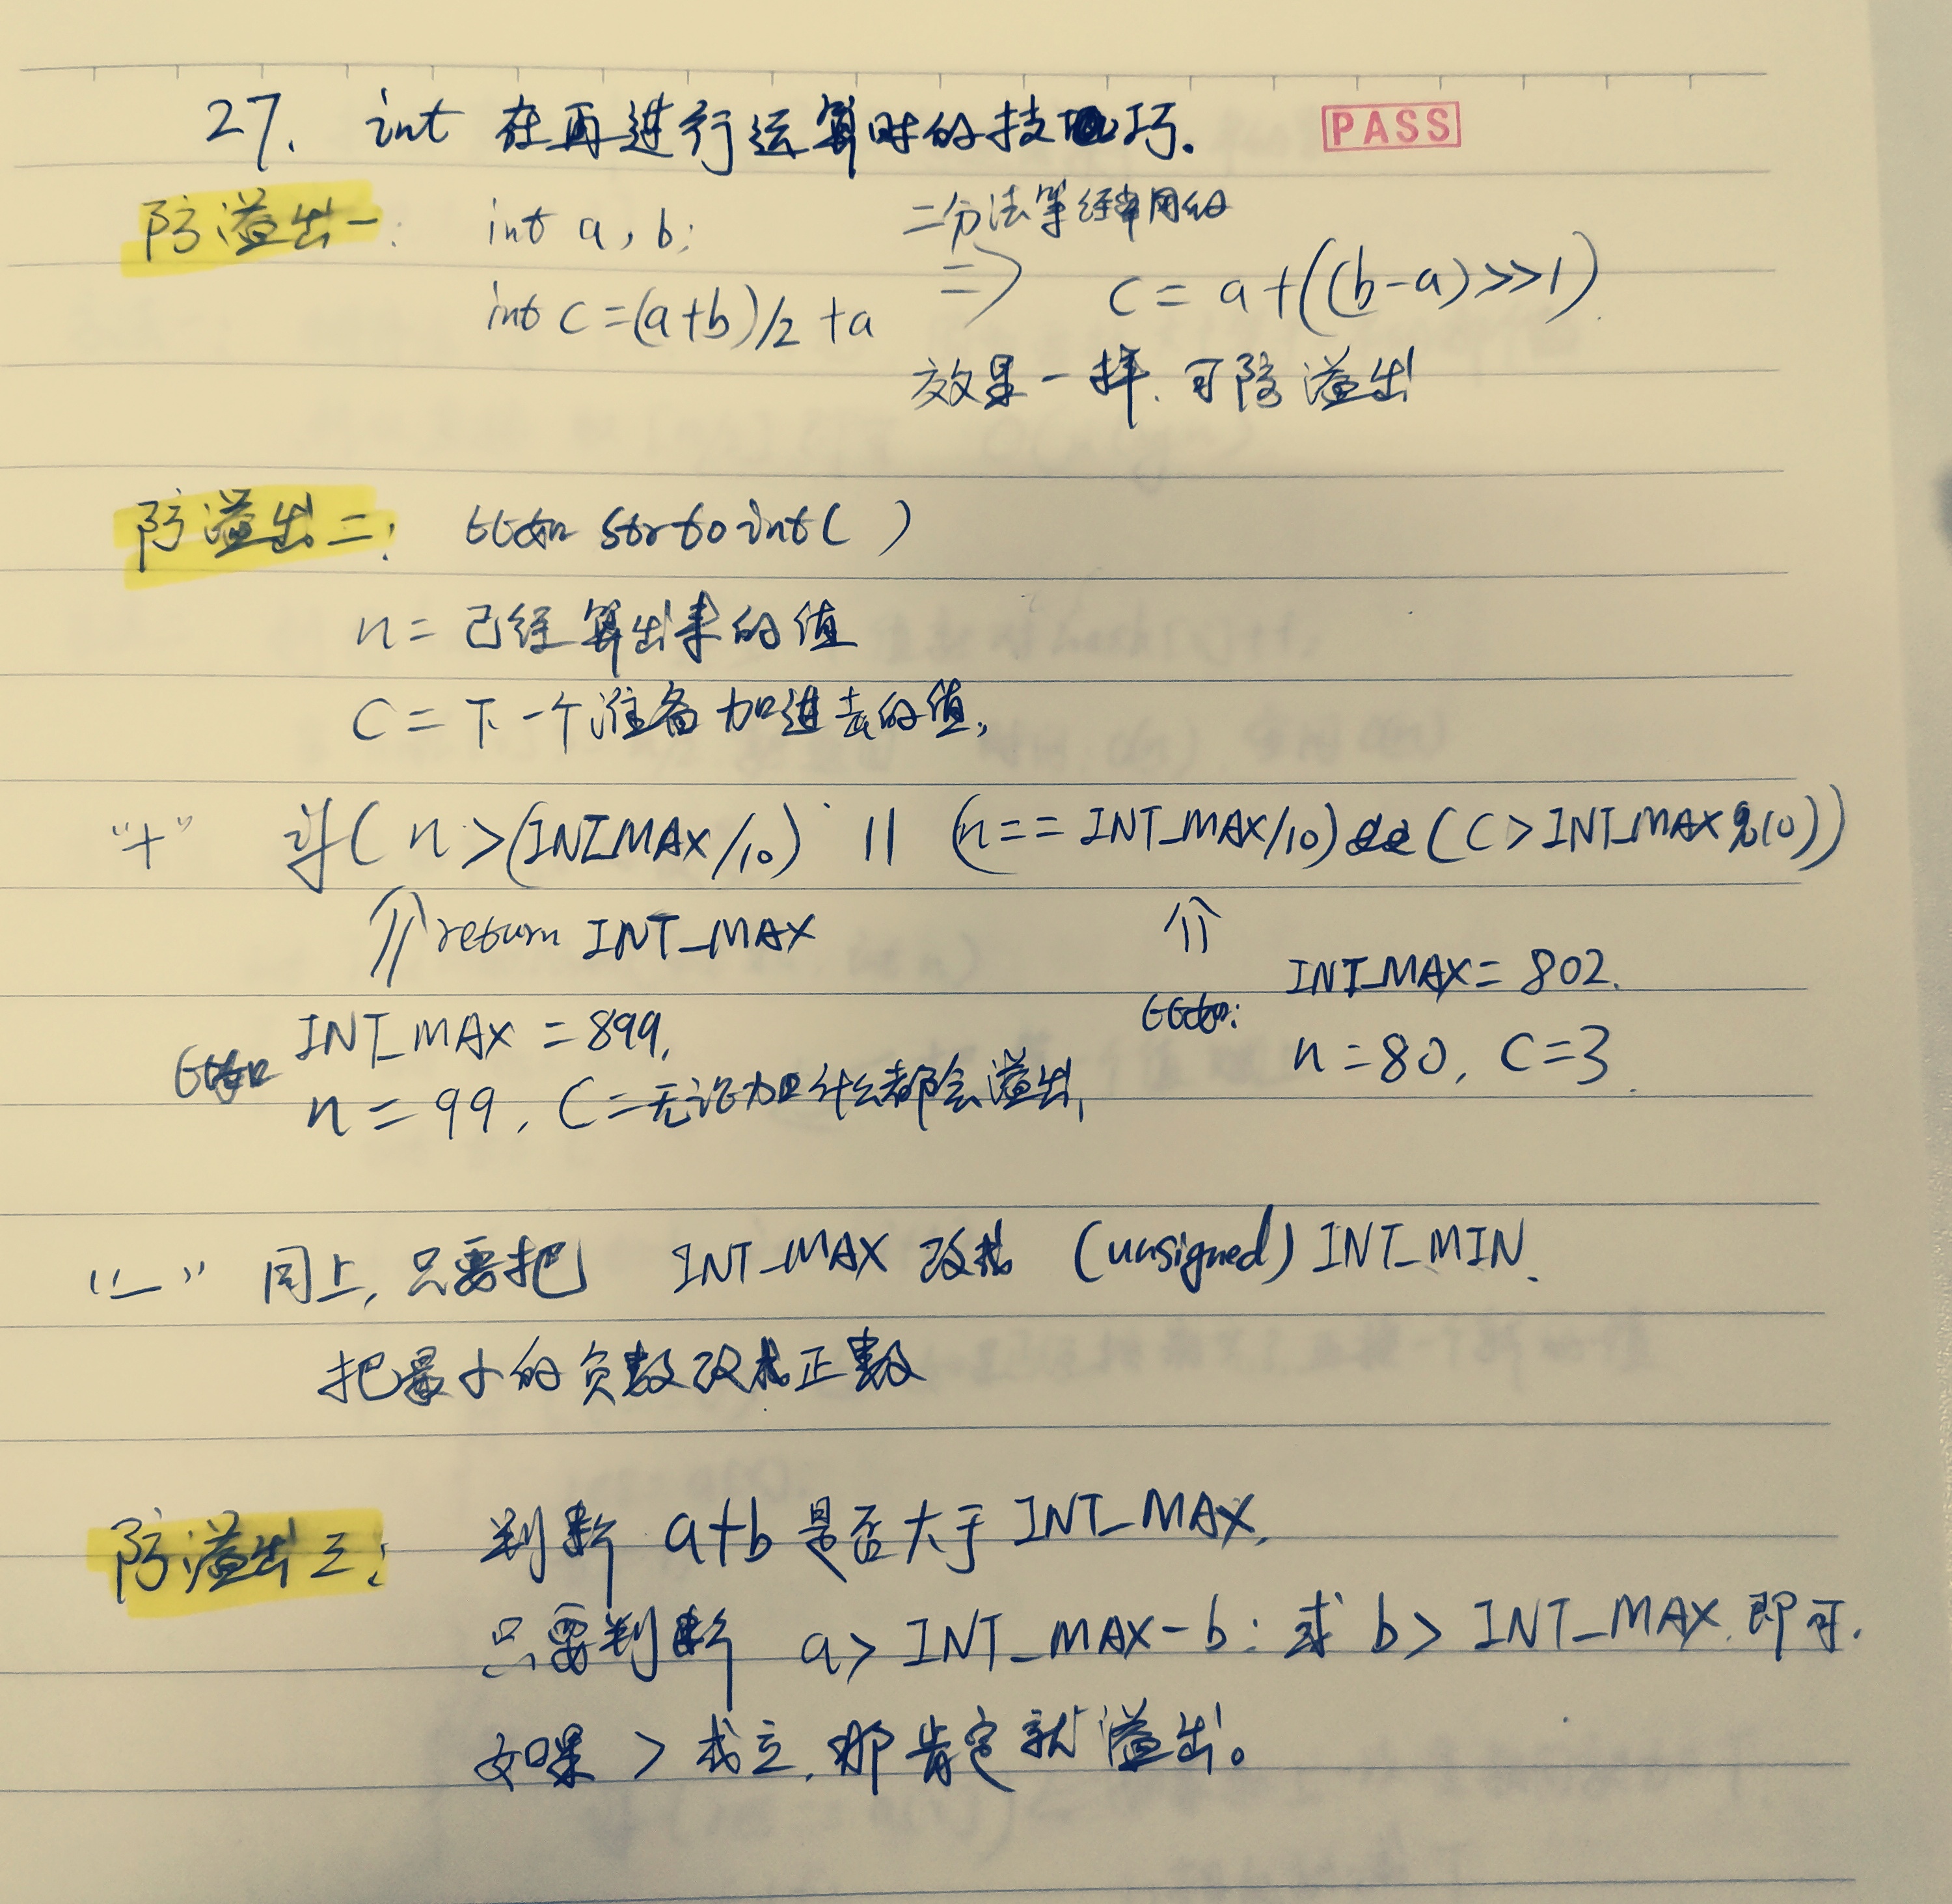 27. int 在再进行运算时的技巧.
PASS
防溢出一: int a, b;
二分法等经常用的
int c = (a+b)/2 + a
=> c = a+((b-a)>>>1).
效果一样. 可防溢出
防溢出二: 比如 strtoint( )
n = 已经算出来的值
C = 下一个准备加进去的值,
"+" if( n >(INT_MAX/10) || (n== INT_MAX/10) && (C > INT_MAX%10))
return INT_MAX
比如 INT_MAX = 899,
n = 99, C = 无论加什么都会溢出,
比如: INT_MAX = 802.
n = 80, C=3.
"-" 同上, 只要把 INT_MAX 改成 (unsigned) INT_MIN.
把最小的负数改成正数
防溢出三: 判断 a+b 是否大于 INT_MAX,
只要判断 a> INT_MAX-b: 或 b> INT_MAX. 即可.
如果 > 成立, 那肯定就溢出。